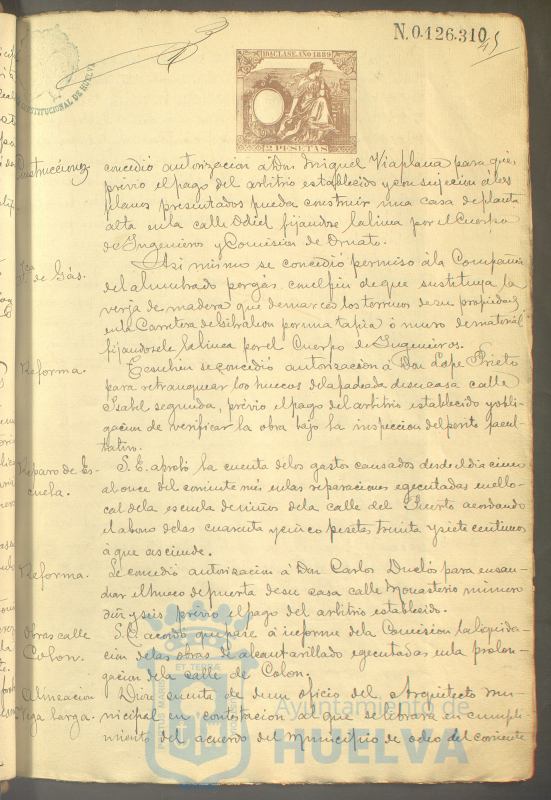 N. 0.126.310
45
CONSTITUCIONAL DE HUELVA
11ª CLASE. AÑO 1889
2 PESETAS
Construcciones
concedió autorizacion á Don Miguel Viaplana para que,
prévio el pago del arbitrio establecido y con sujecion á los
planos presentados pueda construir una casa de planta
alta en la calle Odiel fijándose la linea por el Cuerpo
de Ingenieros y Comision de Ornato.
de Gas.
Asi mismo se concedió permiso á la Compañia
del alumbrado por gas con el fin de que sustituya la
verja de madera que demarca los terrenos de su propiedad
en la Carretera de Gibraleon por una tapia ó muro de material
fijándosele la linea por el Cuerpo de Ingenieros.
Reforma.
Tambien se concedió autorizacion á Don Lope Prieto
para retranquear los huecos de la fachada de su casa calle
Isabel segunda, prévio el pago del arbitrio establecido y obli-
gacion de verificar la obra bajo la inspeccion del perito facul-
tativo.
Reparo de Es-
cuela.
S. E. aprobó la cuenta de los gastos causados desde el dia cinco
al once del corriente mes en las reparaciones egecutadas en el lo-
cal de la escuela de niños de la calle del Puerto acordando
el abono de las cuarenta y cinco pesetas treinta y siete centimos
á que asciende.
Reforma.
Se concedió autorizacion á Don Carlos Duclós para ensan-
char el hueco de puerta de su casa calle Monasterio número
diez y seis prévio el pago del arbitrio establecido.
Obras calle
Colon.
S. E. acordó que pase á informe de la Comision la liquida-
cion de las obras de alcantarillado egecutadas en la prolon-
gacion de la calle de Colon.
Alineacion
Vega larga.
Dióse cuenta de un oficio del Arquitecto mu-
nicipal en contestacion al que se librara en cumpli-
miento del acuerdo del Municipio de ocho del corriente
Ayuntamiento de
HUELVA